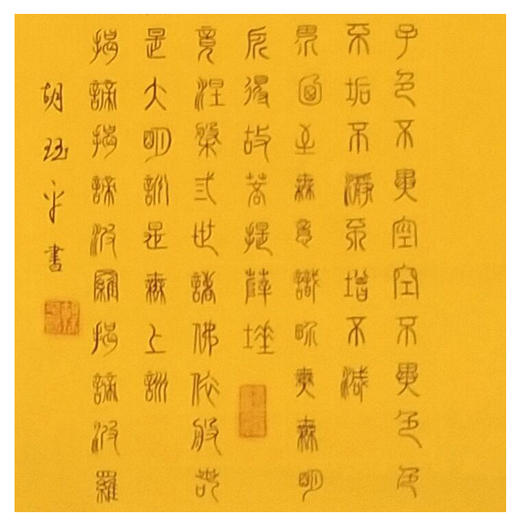 子色不異空空不異色色
不垢不淨不增不減
界乃至無意識界無無明
所得故菩提薩埵
竟涅槃三世諸佛依般若
是大明咒是無上咒
揭諦揭諦波羅揭諦波羅
胡平書